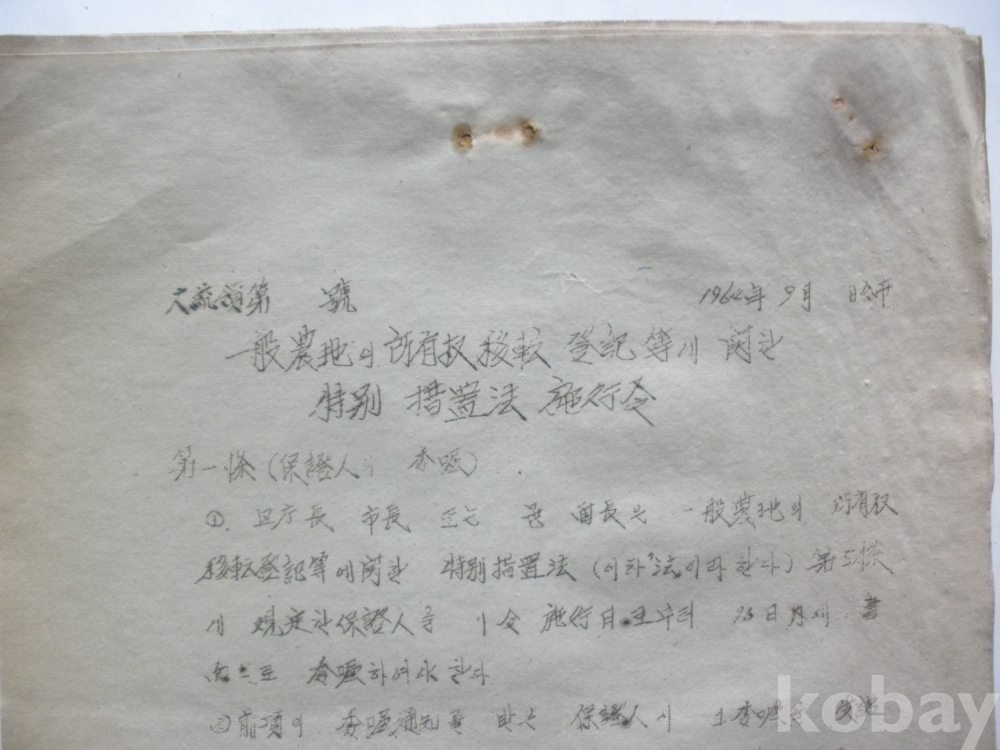 大統領第 號 1964年 9月 日公布
一般農地의 所有权移転 登記 等에 関한
特別 措置法 施行令
第一條(保證人의 委嘱)
①. 区庁長 市長 또는 面長은 一般農地의 所有权
移転登記等에関한 特別措置法 (이하"法"이라 한다) 第5條
에 規定한保證人을 이令 施行日로부터 15日 書
面으로 委嘱하여야 한다
②前項의 委嘱通知를 받은 保證人이 委嘱을
kobay